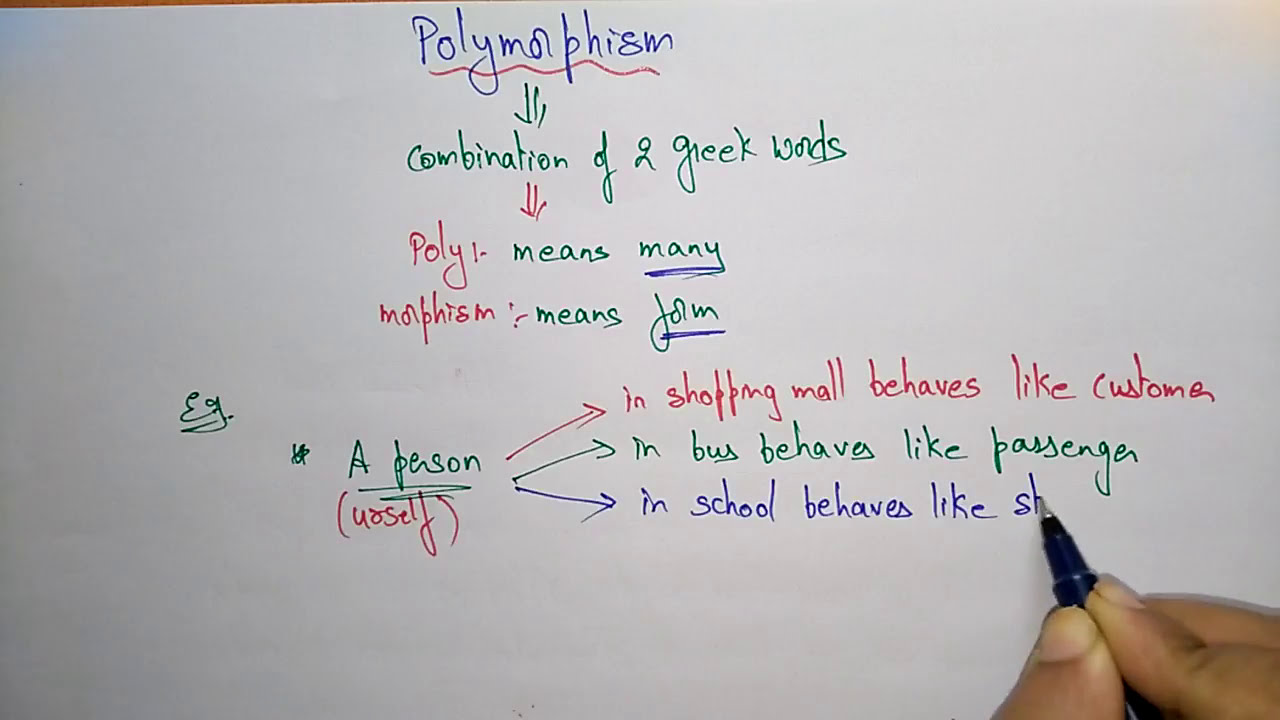 Polymorphism
combination of 2 greek words
Poly :- means many
morphism :- means form
in shopping mall behaves like customer
Eg.
* A person
in bus behaves like passenger
(urself)
in school behaves like st